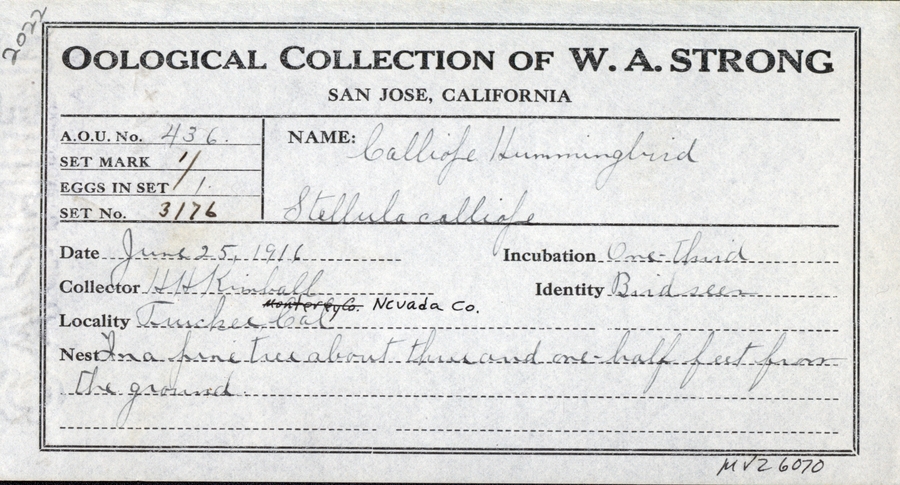 2022
OOLOGICAL COLLECTION OF W. A. STRONG
SAN JOSE, CALIFORNIA
A.O.U. No. 436.
SET MARK 1/
EGGS IN SET 1.
SET No. 3176
NAME: Calliope Hummingbird
Stellula calliope
Date June 25, 1916
Incubation One-third
Collector H H Kimball
Identity Bird seen
Monterey Co. Nevada Co.
Locality Truckee Cal
Nest In a pine tree about three and one-half feet from
the ground.
MVZ 6070